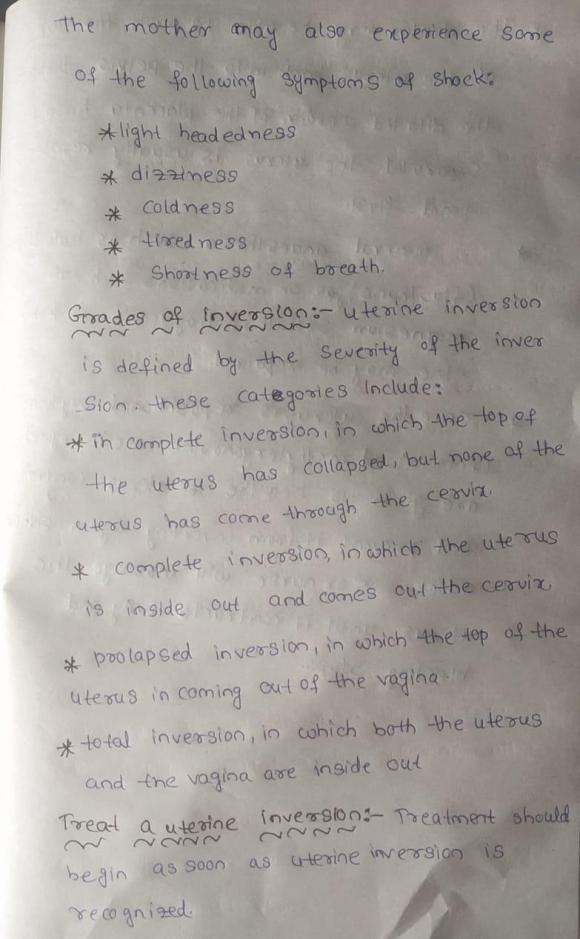 The mother may also experience some
of the following symptoms of shock:
* light headedness
* dizziness
* coldness
* tiredness
* Shortness of breath.
Grades of inversion:- uterine inversion
is defined by the severity of the inver
sion. these categories include:
* in complete inversion, in which the top of
the uterus has collapsed, but none of the
uterus has come through the cervix.
* complete inversion, in which the uterus
is inside out and comes out the cervix
* proolapsed inversion, in which the top of the
uterus in coming out of the vagina.
* total inversion, in which both the uterus
and the vagina are inside out
Treat a uterine inversion:- Treatment should
begin as soon as uterine inversion is
recognized.